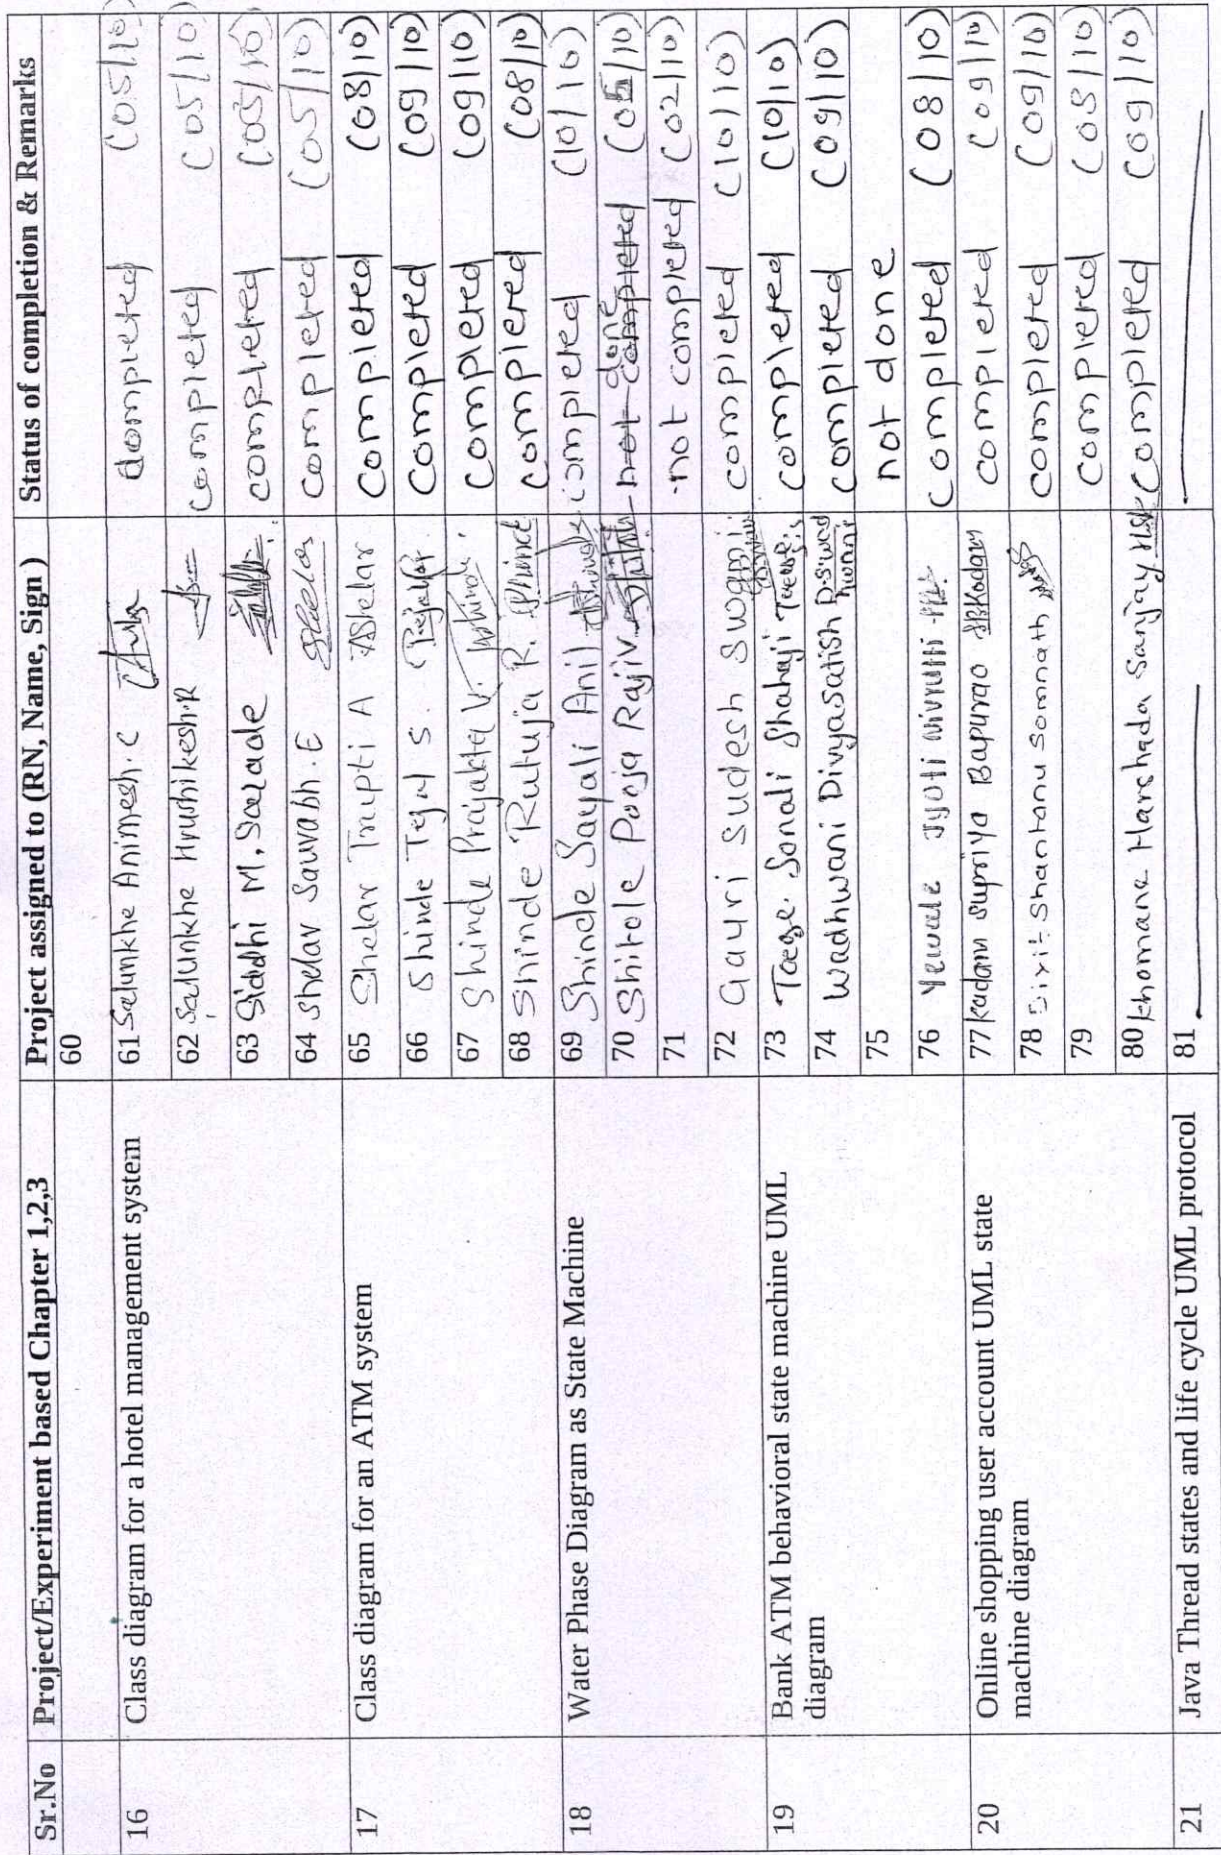 Sr.No Project/Experiment based Chapter 1,2,3 Project assigned to (RN, Name, Sign ) Status of completion & Remarks
60
16 Class diagram for a hotel management system 61 Salunkhe Animesh. C completed (05/10)
62 Salunkhe Hrushikesh.R completed (05/10)
63 Siddhi M. Sarade completed (05/10)
64 Shelar Sauvabh. E completed (05/10)
17 Class diagram for an ATM system 65 Shelar Trupti A AShelar completed (08/10)
66 Shinde Tejal S. completed (09/10)
67 Shinde Prajakta V. completed (09/10)
68 Shinde Rutuja R. completed (08/10)
18 Water Phase Diagram as State Machine 69 Shinde Sayali Anil completed (10/10)
70 Shitole Pooja Rajiv not completed done (05/10)
71 not completed (02/10)
72 Gauri Sudesh Swami completed (10/10)
19 Bank ATM behavioral state machine UML
diagram
73 Taege Sonali Shahaji completed (10/10)
74 Wadhwani Divyasatish completed (09/10)
75 not done
76 Yewale Jyoti Nivrutti completed (08/10)
20 Online shopping user account UML state
machine diagram
77 Kadam Supriya Bapurao SBKadam completed (09/10)
78 Shantanu Somnath completed (09/10)
79 completed (08/10)
80 Khomane Harshada Sanjay HSK completed (09/10)
21 Java Thread states and life cycle UML protocol 81